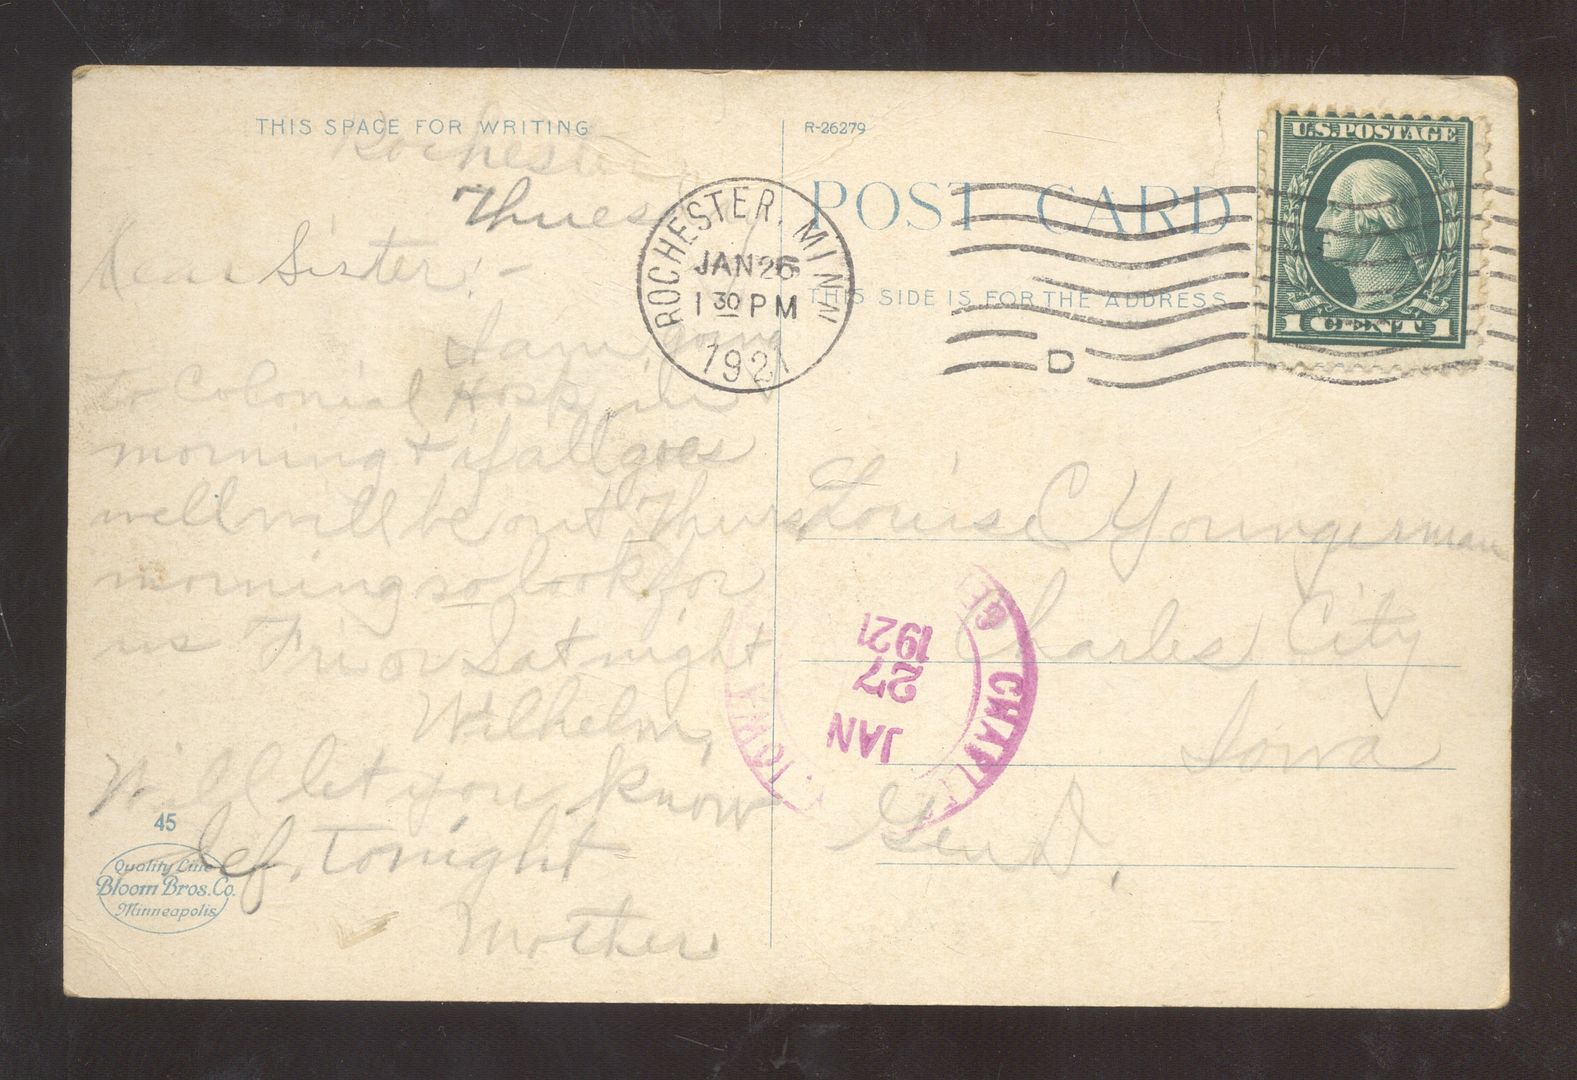 THIS SPACE FOR WRITING
Rochester
Thues
Dear Sister:-
I am going
to Colonial Hosp. in
morning & if all goes
well will be out Thurs
morning so look for
us Fri or Sat night
Wilhelm,
Will let you know
def. tonight
Mother
45
Quality Line
Bloom Bros. Co.
Minneapolis
R-26279
POST CARD
THIS SIDE IS FOR THE ADDRESS
ROCHESTER, MINN
JAN 26
1 30 PM
1921
D
U.S. POSTAGE
1 CENT 1
Louise C Youngerman
Charles City
Iowa
Gen D,
JAN
27
1921
IOWA